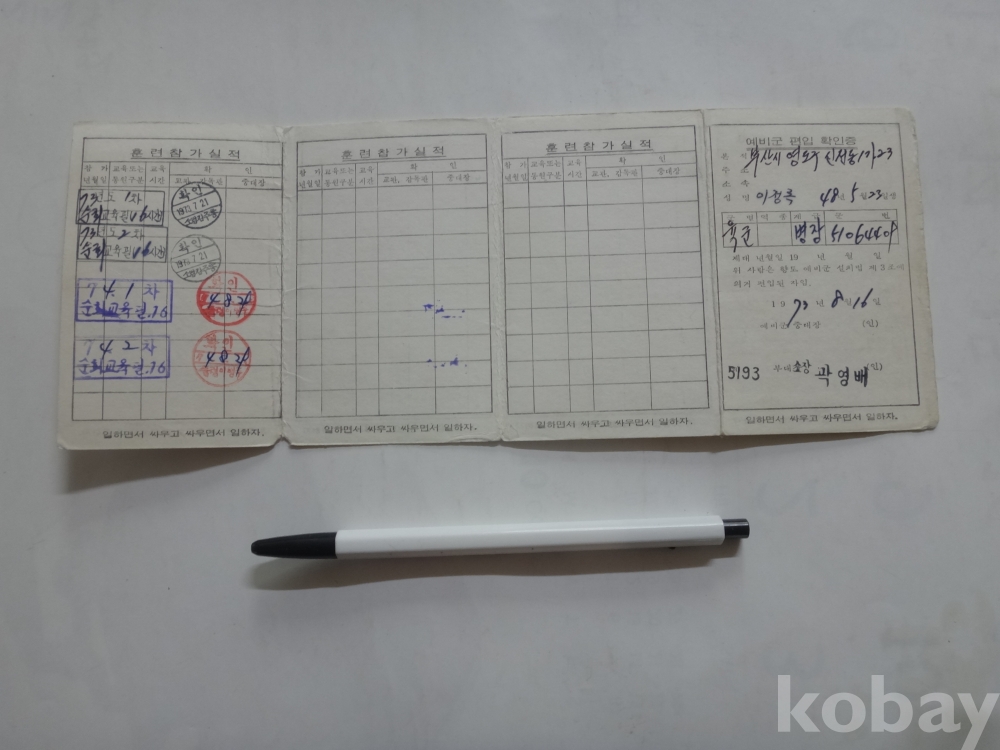 훈련참가실적
참가 교육또는 교육 확인
년월일 동원구분 시간 교관, 감독관 중대장
73년도 1차
순회교육필 16시간
확인
73년도 2차
순회교육필 16시간
확인
74. 1차
순회교육필. 16
확인
74. 2차
순회교육필. 16
확인
일하면서 싸우고 싸우면서 일하자.
훈련참가실적
참가 교육또는 교육 확인
년월일 동원구분 시간 교관, 감독관 중대장
일하면서 싸우고 싸우면서 일하자.
훈련참가실적
참가 교육또는 교육 확인
년월일 동원구분 시간 교관, 감독관 중대장
일하면서 싸우고 싸우면서 일하자.
예비군 편입 확인증
부산시 영도구 신선동1가23
주소
소속
성명 48년 5월 23일생
군명 역종 계급 군번
육군 병장
제대 년월일 19 년 월 일
위 사람은 향토 예비군 설치법 제3조에
의거 편입된 자임.
1973년 8월 16일
예비군 중대장 (인)
5193 부대 소장 곽영배 (인)
일하면서 싸우고 싸우면서 일하자.
kobay